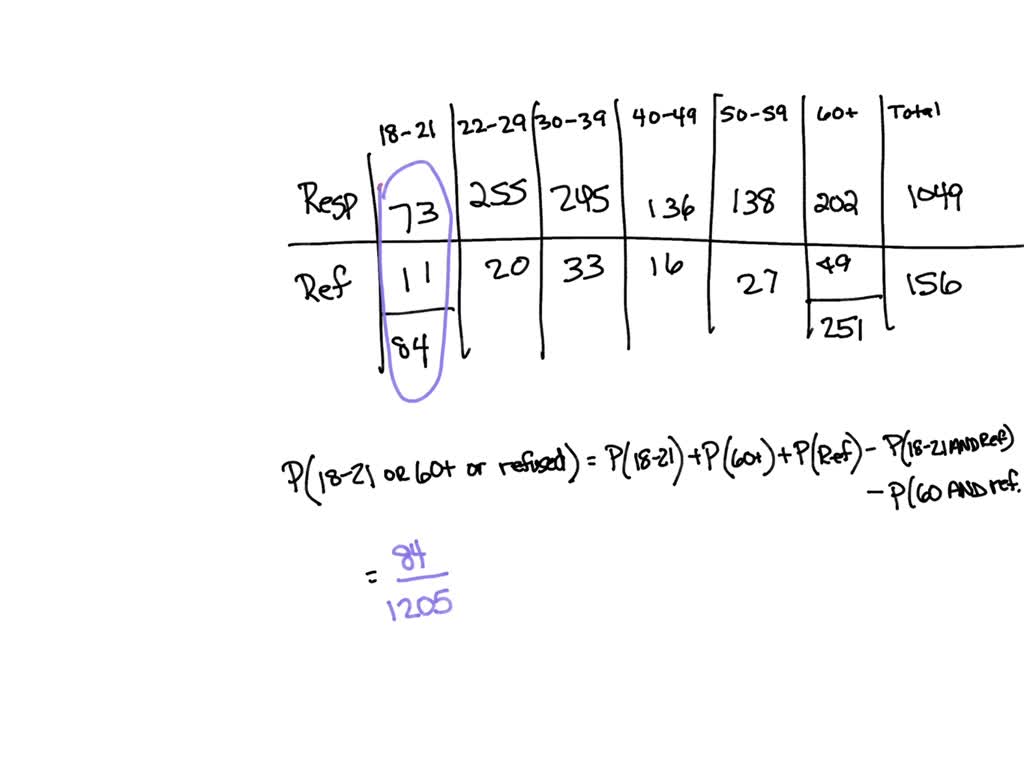 18-21 22-29 30-39 40-49 50-59 60+ Total
Resp 73 255 245 136 138 202 1049
Ref 11 20 33 16 27 49 156
84 251
P(18-21 OR 60+ or refused) = P(18-21) + P(60+) + P(Ref) - P(18-21 AND Ref)
- P(60 AND ref.
= 84
1205